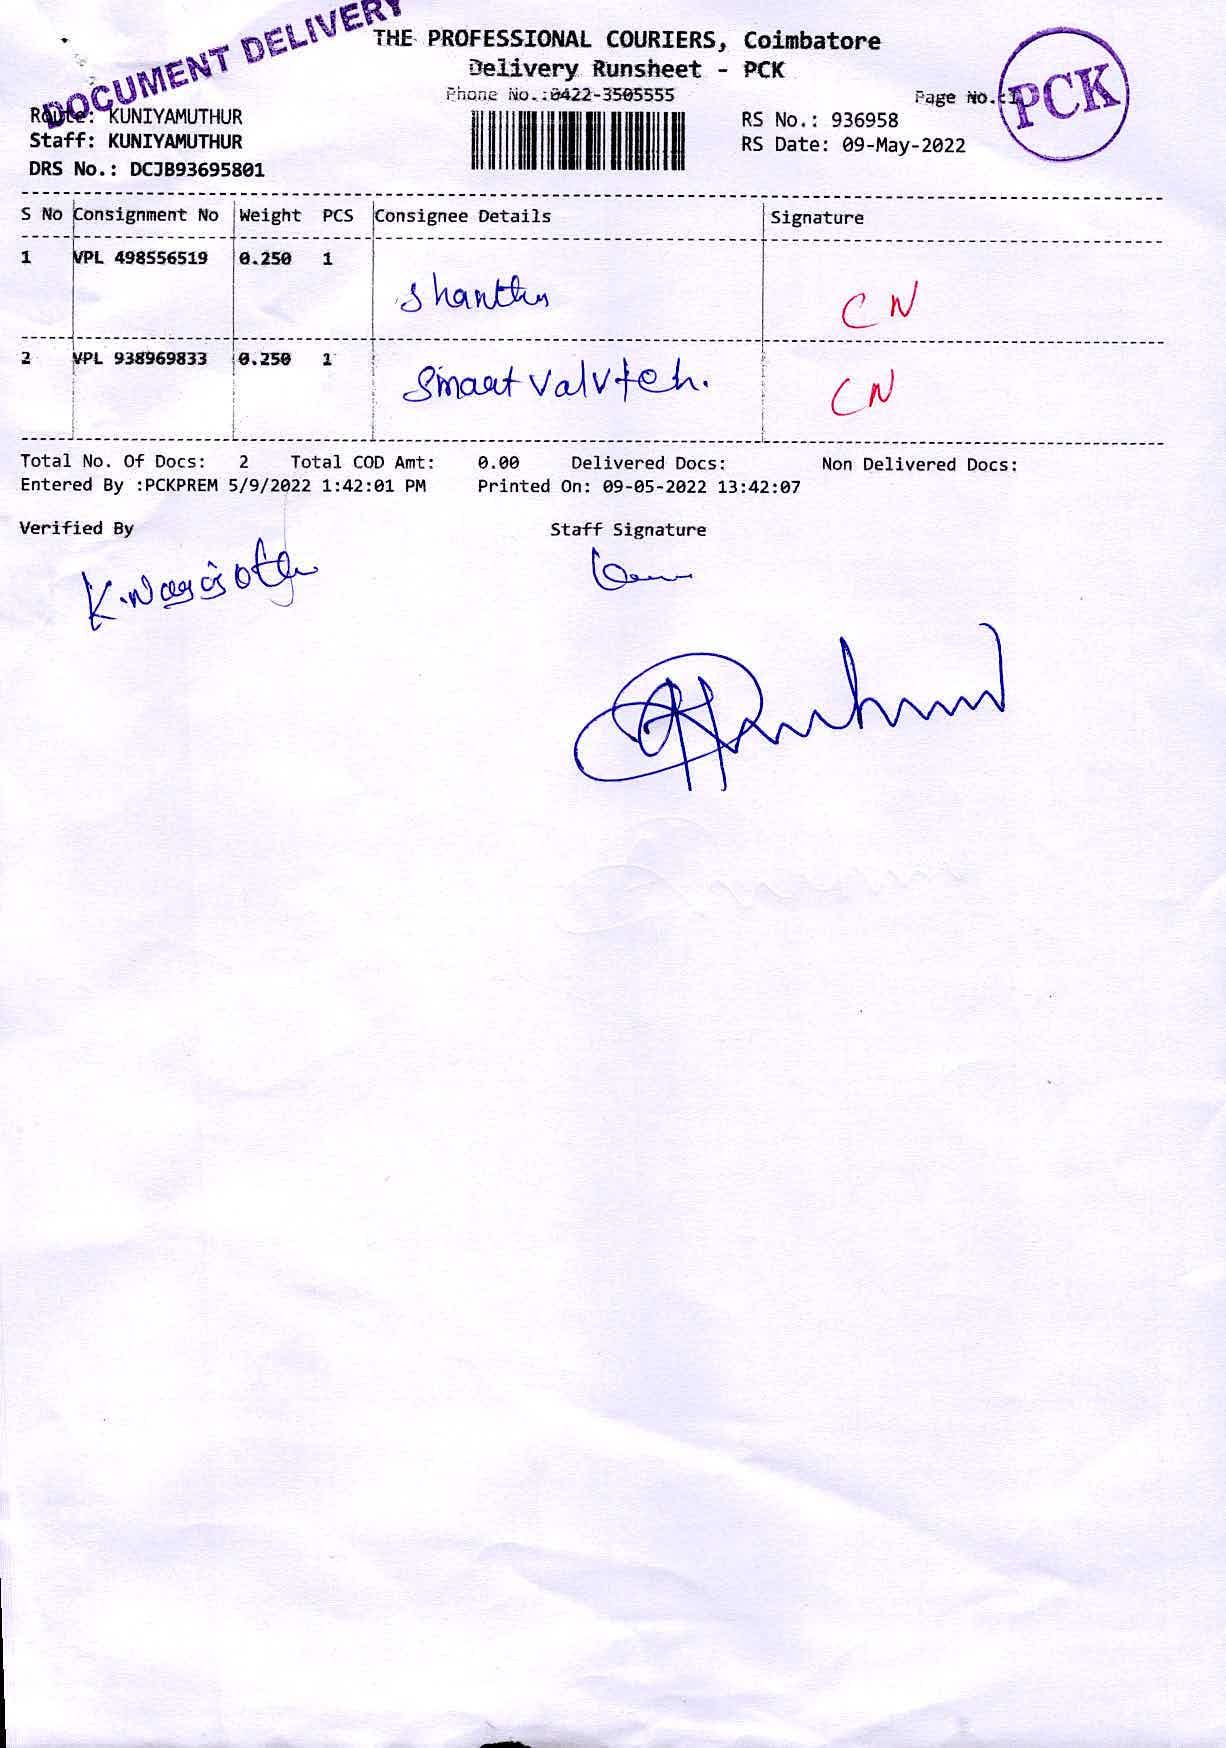 DOCUMENT DELIVERY
THE PROFESSIONAL COURIERS, Coimbatore
Delivery Runsheet - PCK
Phone No.:0422-3505555
Page No.:1
PCK
Route: KUNIYAMUTHUR
RS No.: 936958
Staff: KUNIYAMUTHUR
RS Date: 09-May-2022
DRS No.: DCJB93695801
S No Consignment No Weight PCS Consignee Details Signature
1 VPL 498556519 0.250 1
CN
2 VPL 938969833 0.250 1
Smart Valvtech.
CN
Total No. Of Docs: 2 Total COD Amt: 0.00 Delivered Docs: Non Delivered Docs:
Entered By :PCKPREM 5/9/2022 1:42:01 PM Printed On: 09-05-2022 13:42:07
Verified By Staff Signature